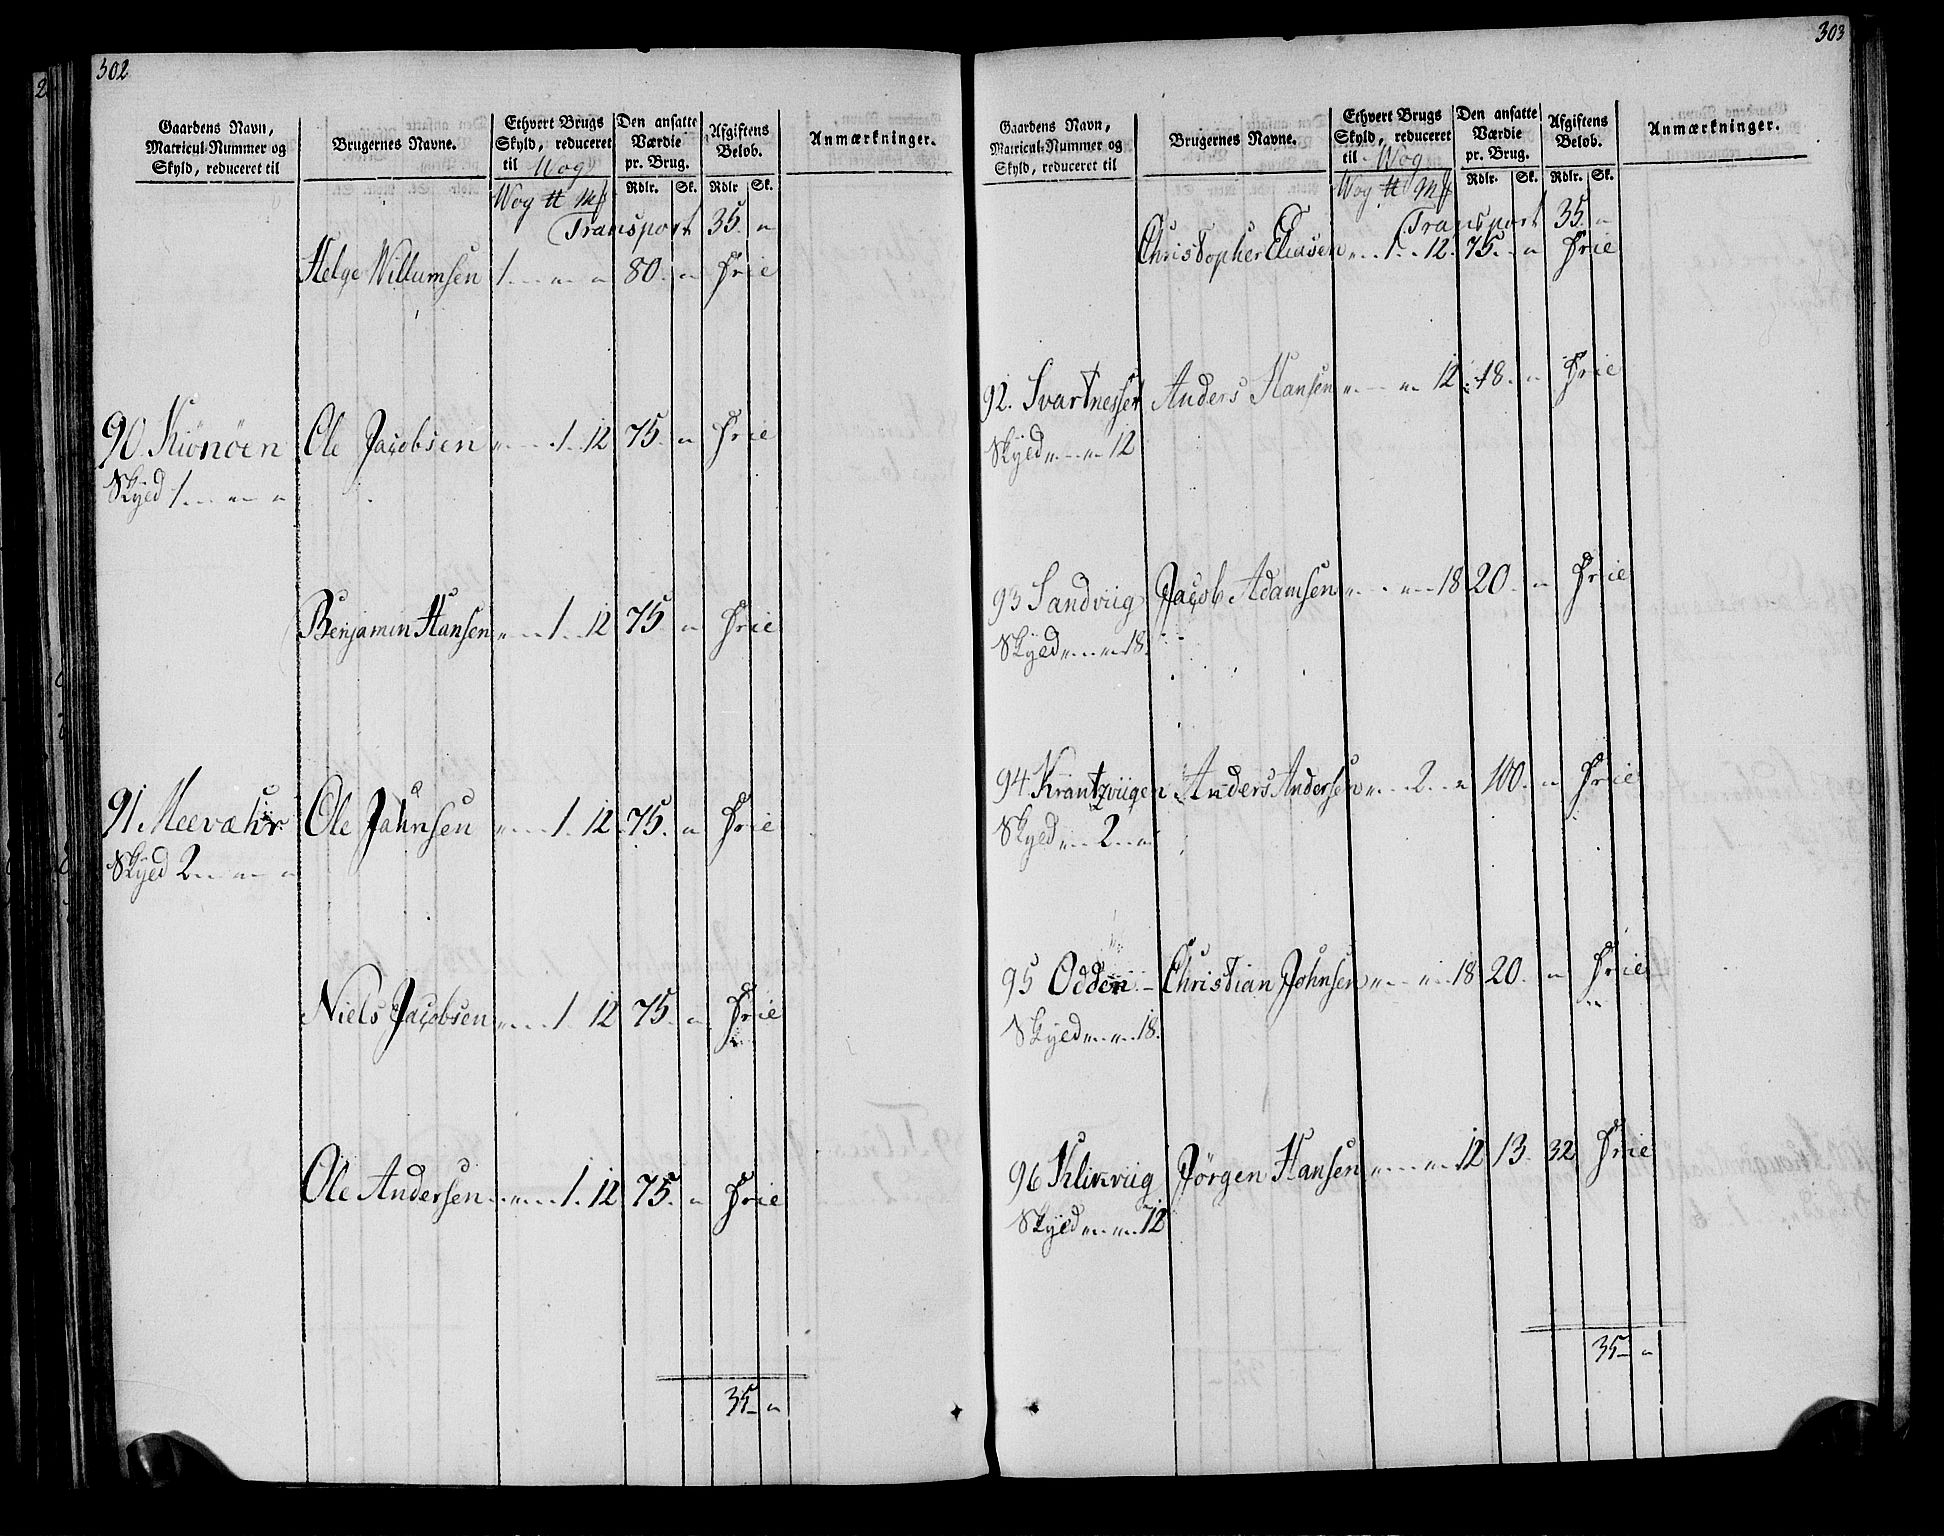 302
Gaardens Navn, Matricul-Nummer og Skyld, reduceret til
Brugernes Navne.
Ethvert Brugs Skyld, reduceret til Wog
Den ansatte Værdie pr. Brug.
Afgiftens Beløb.
Anmærkninger.
Wog ℔ Mk Rdlr. Sk. Rdlr Sk.
Transport 35. "
Helge Willumsen 1 " " 80. " Frie
90. Kiönöen Ole Jacobsen " 1. 12 75. " Frie
Skyld 1. " "
Benjamin Hansen " 1. 12 75. " Frie
91. Meevær Ole Jahnsen " 1. 12 75. " Frie
Skyld 2. " "
Niels Jacobsen " 1. 12 75. " Frie
Ole Andersen " 1. 12 75. " Frie
35 "
303
Gaardens Navn, Matricul-Nummer og Skyld, reduceret til
Brugernes Navne.
Ethvert Brugs Skyld, reduceret til Wog
Den ansatte Værdie pr. Brug.
Afgiftens Beløb.
Anmærkninger.
Wog ℔ Mk Rdlr. Sk. Rdlr. Sk.
Transport 35. "
Christopher Eliasen " 1. 12. 75. " Frie
92. Svartnesset Anders Hansen " " 12. 18. " Frie
Skyld " " 12
93 Sandviig Jacob Adamsen " " 18 20. " Frie
Skyld " " 18.
94 Krantzviigen Anders Andersen " 2. " 100. " Frie
Skyld " 2. "
95 Odden Christian Johnsen " " 18 20. " Frie
Skyld " " 18.
96 Klikviig Jörgen Hansen " " 12 13. 32 Frie
Skyld " " 12
35 "